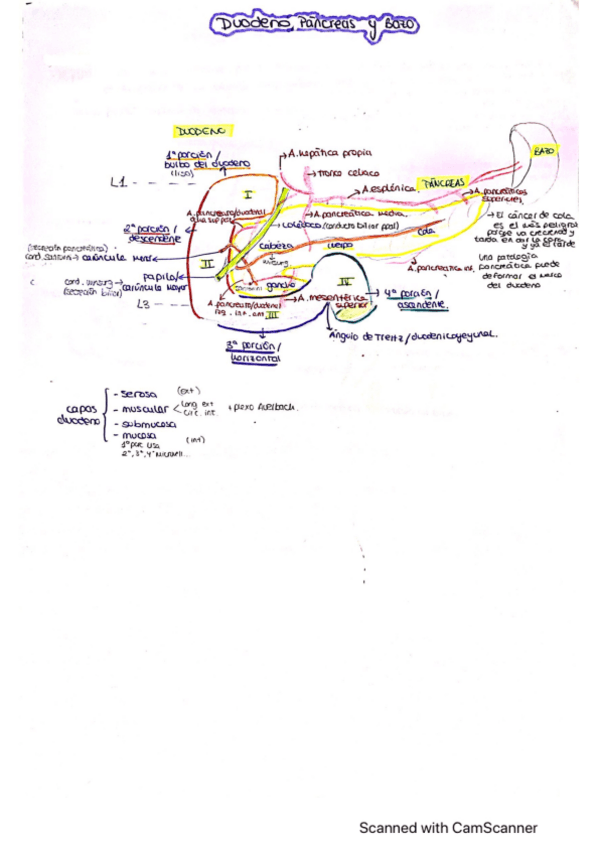 Duodeno, Páncreas y Bazo
DUODENO
1ª porción /
bulbo del duodeno
(liso)
L1 - - - -
A. hepática propia
tronco celíaco
A. esplénica
PÁNCREAS
BAZO
A. pancreáticas
I
A. pancreática media
2ª porción /
descendente
colédoco (conducto biliar ppal)
cabeza
cuerpo
cola
El cáncer de cola
es el más peligroso
porque va creciendo y
y ya es tarde
Una patología
pancreática puede
deformar el marco
del duodeno
(secreción pancreática)
carúncula menor
II
papila
carúncula mayor
(secreción biliar)
gancho
IV
A. pancreática inf.
L3 - - - -
A. pancreatoduodenal
III
A. mesentérica
superior
4ª porción /
ascendente
Ángulo de Treitz / duodenoyeyunal.
3ª porción /
horizontal
capas
duodeno
- serosa (ext)
- muscular < Long ext
Circ. int. + plexo Auerbach.
- submucosa
- mucosa (int)
1ª por. lisa
2ª, 3ª, 4ª
Scanned with CamScanner